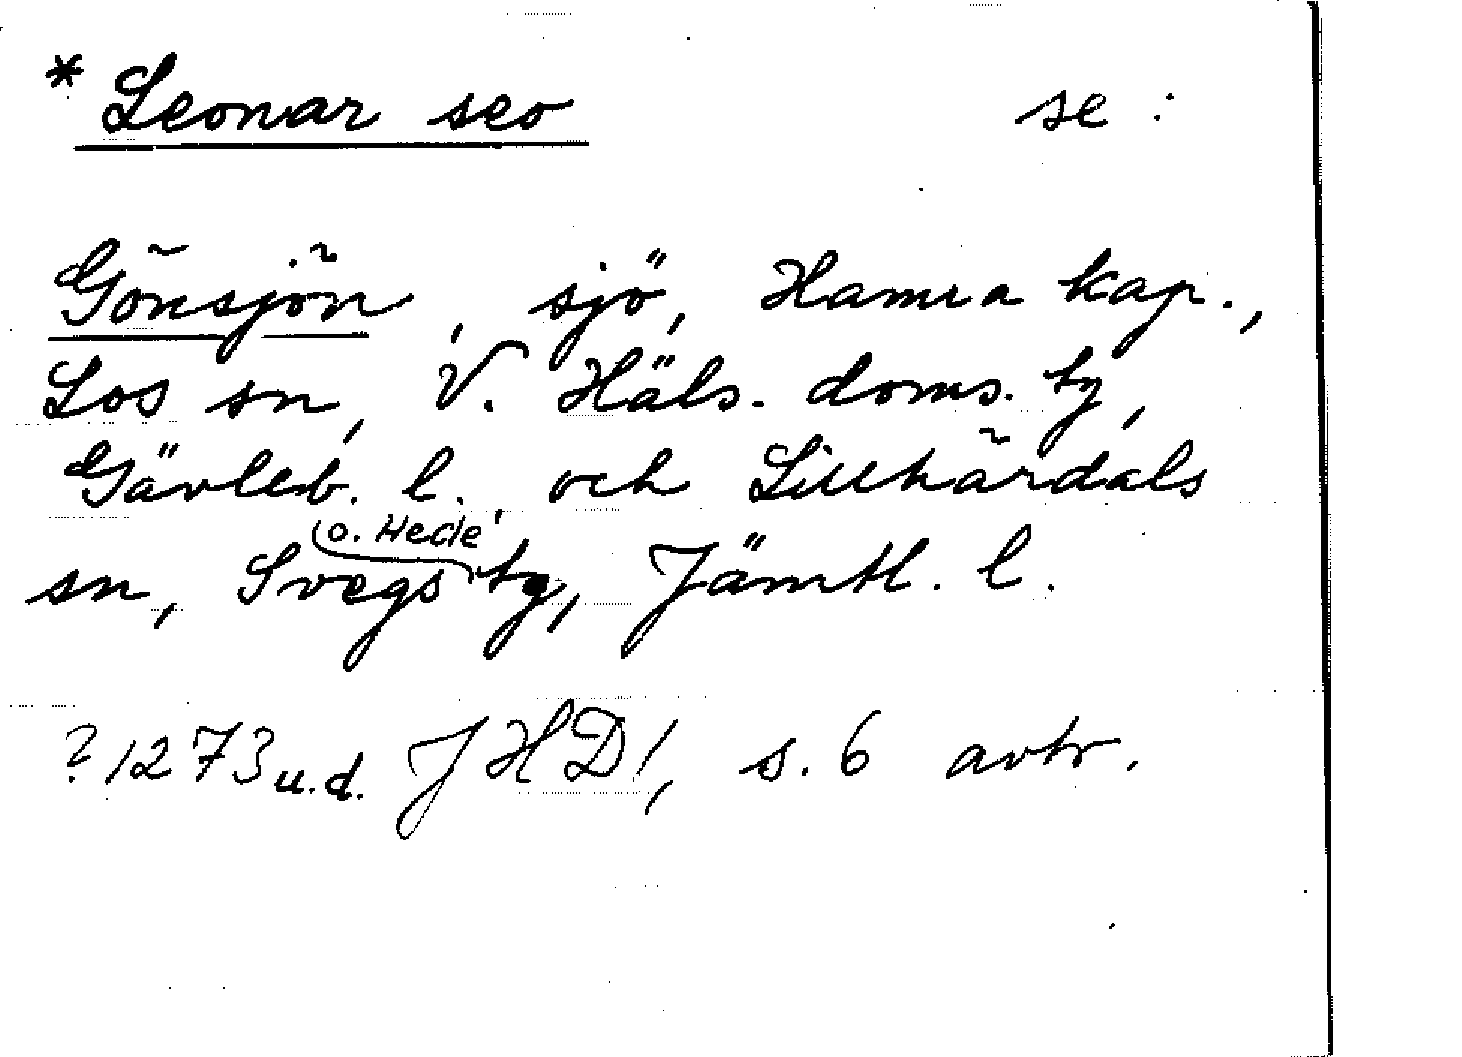 * Leonar seo se :
Gönsjön, sjö, Hamra kap.,
Los sn, V. Häls. doms. tg,
Gävleb. l. och Lillhärdals
sn, Svegs o. Hede tg, Jämtl. l.
? 1273 u.d. JHD1, s. 6 avtr.